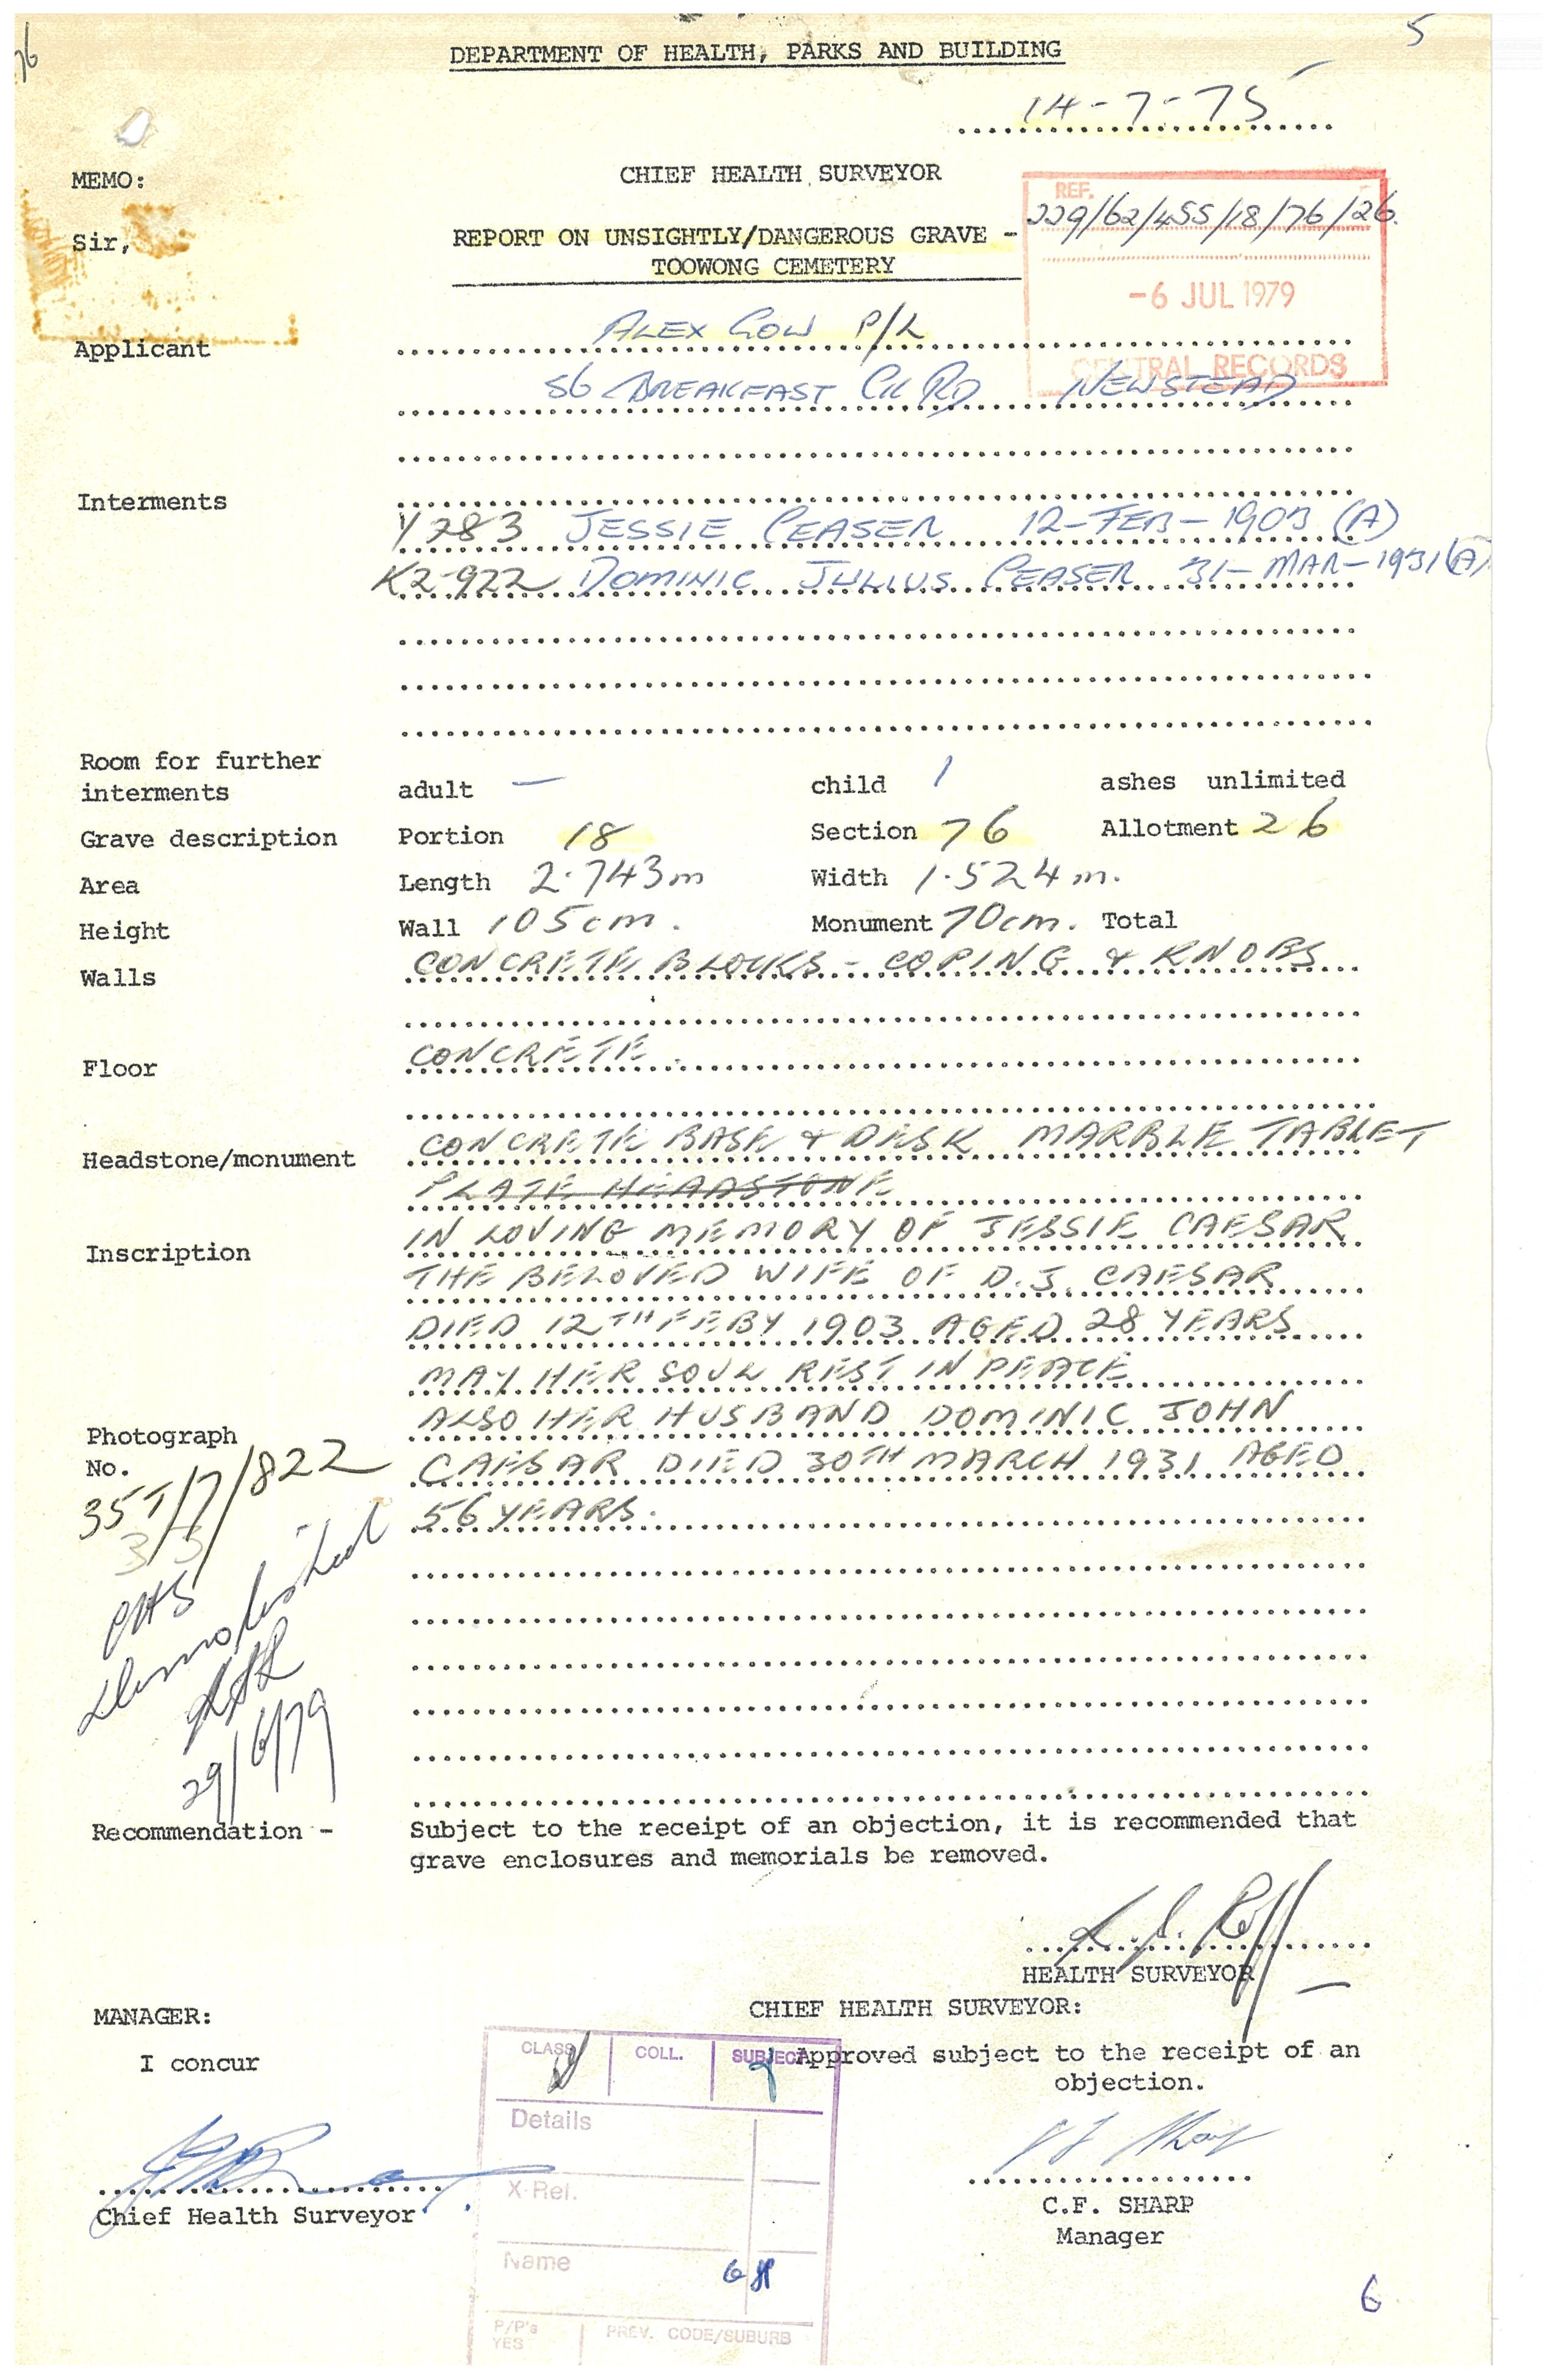 5
76
DEPARTMENT OF HEALTH, PARKS AND BUILDING
14-7-75
MEMO:
CHIEF HEALTH SURVEYOR
REF.
229/62/455/18/76/26.
Sir,
REPORT ON UNSIGHTLY/DANGEROUS GRAVE -
TOOWONG CEMETERY
-6 JUL 1979
CENTRAL RECORDS
Applicant ALEX GOW P/L
56 BREAKFAST CK RD NEWSTEAD
Interments
Y283 JESSIE CEASER 12-FEB-1903 (A)
K2-922 DOMINIC JULIUS CEASER 31-MAR-1931 (A)
Room for further
interments adult — child 1 ashes unlimited
Grave description Portion 18 Section 76 Allotment 26
Area Length 2.743m Width 1.524m.
Height Wall 105cm. Monument 70cm. Total
Walls CONCRETE BLOCKS - COPING & KNOBS
Floor CONCRETE.
Headstone/monument CONCRETE BASE & DESK MARBLE TABLET
PLATE HEADSTONE
Inscription IN LOVING MEMORY OF JESSIE CAESAR
THE BELOVED WIFE OF D.J. CAESAR
DIED 12TH FEBY 1903 AGED 28 YEARS
MAY HER SOUL REST IN PEACE
Photograph ALSO HER HUSBAND DOMINIC JOHN
No. CAESAR DIED 30TH MARCH 1931 AGED
35T/7/822
56 YEARS.
CHS
Demolished
29/6/79
Recommendation - Subject to the receipt of an objection, it is recommended that
grave enclosures and memorials be removed.
HEALTH SURVEYOR
MANAGER:
CHIEF HEALTH SURVEYOR:
I concur
Approved subject to the receipt of an
objection.
CLASS COLL. SUBJECT
Details
X-Ref.
Name
P/P's
YES
PREV. CODE/SUBURB
Chief Health Surveyor
C.F. SHARP
Manager
6